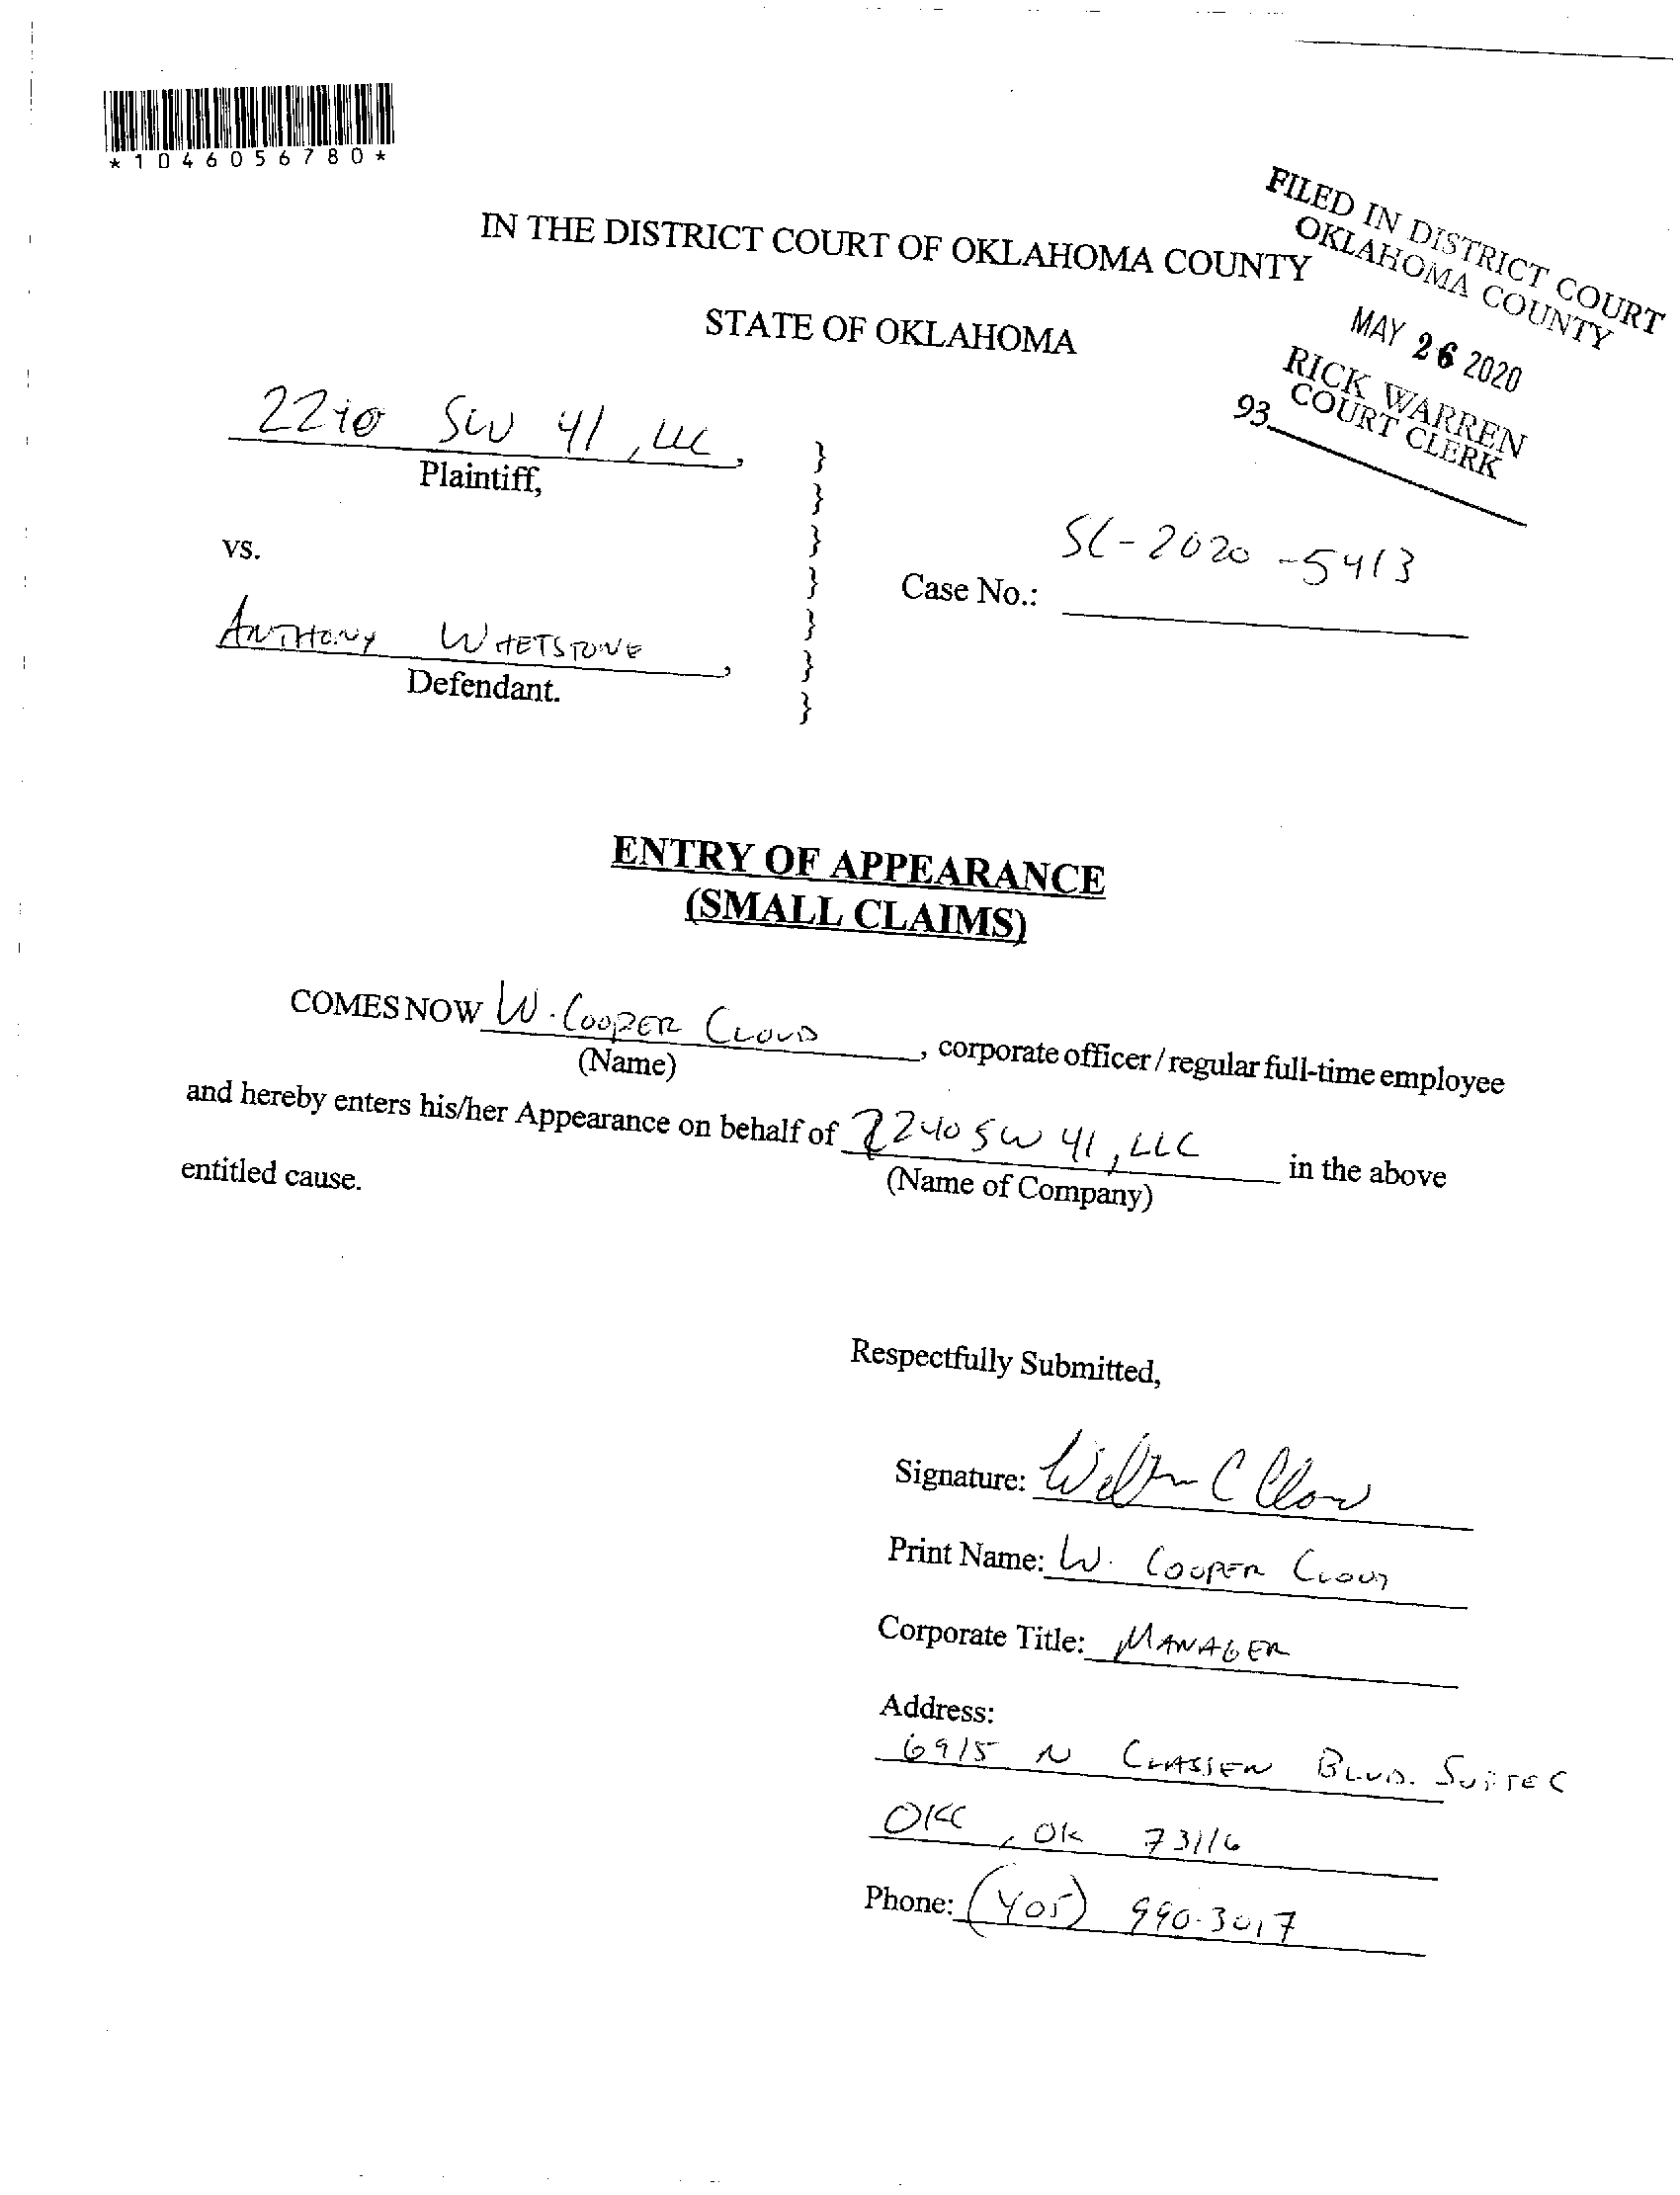 *1046056780*
FILED IN DISTRICT COURT
OKLAHOMA COUNTY
MAY 26 2020
RICK WARREN
COURT CLERK
93
IN THE DISTRICT COURT OF OKLAHOMA COUNTY
STATE OF OKLAHOMA
2240 SW 41, LLC,
Plaintiff,
vs.
Case No.: SC-2020-5413
ANTHONY WHETSTONE,
Defendant.
}
}
}
}
}
}
}
ENTRY OF APPEARANCE
(SMALL CLAIMS)
COMES NOW W. COOPER CLOUD, corporate officer / regular full-time employee
(Name)
and hereby enters his/her Appearance on behalf of 2240 SW 41, LLC in the above
(Name of Company)
entitled cause.
Respectfully Submitted,
Signature: C Cloud
Print Name: W. COOPER CLOUD
Corporate Title: MANAGER
Address:
6915 N CLASSEN BLVD. SUITE C
OKC, OK 73116
Phone: (405) 990-3017